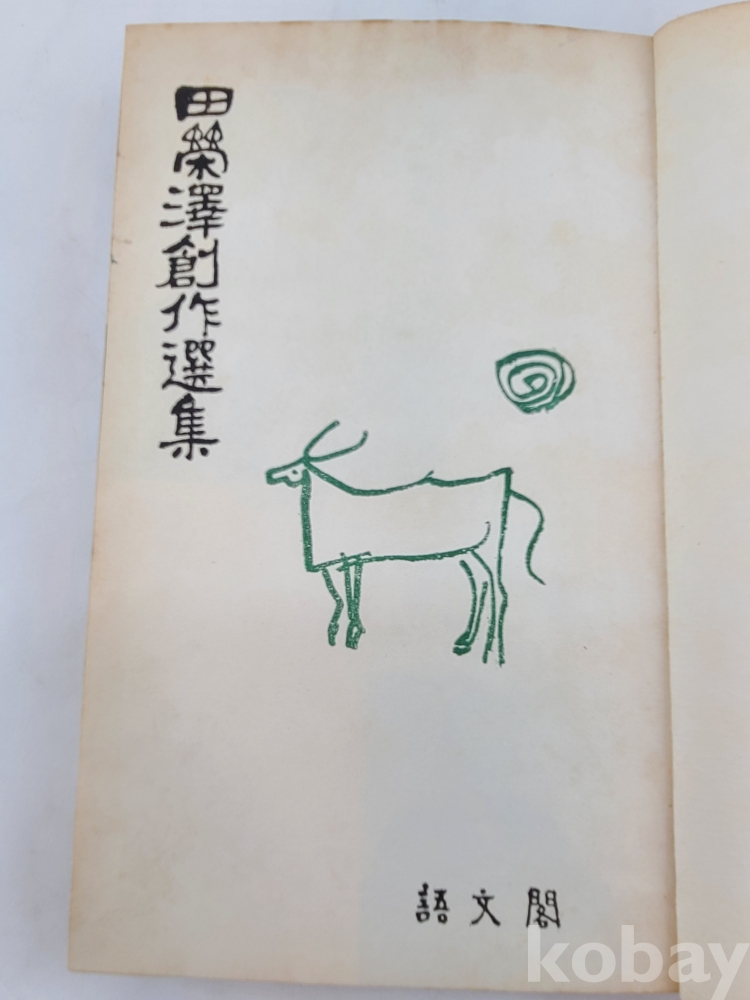 田榮澤創作選集
語文閣
kobay